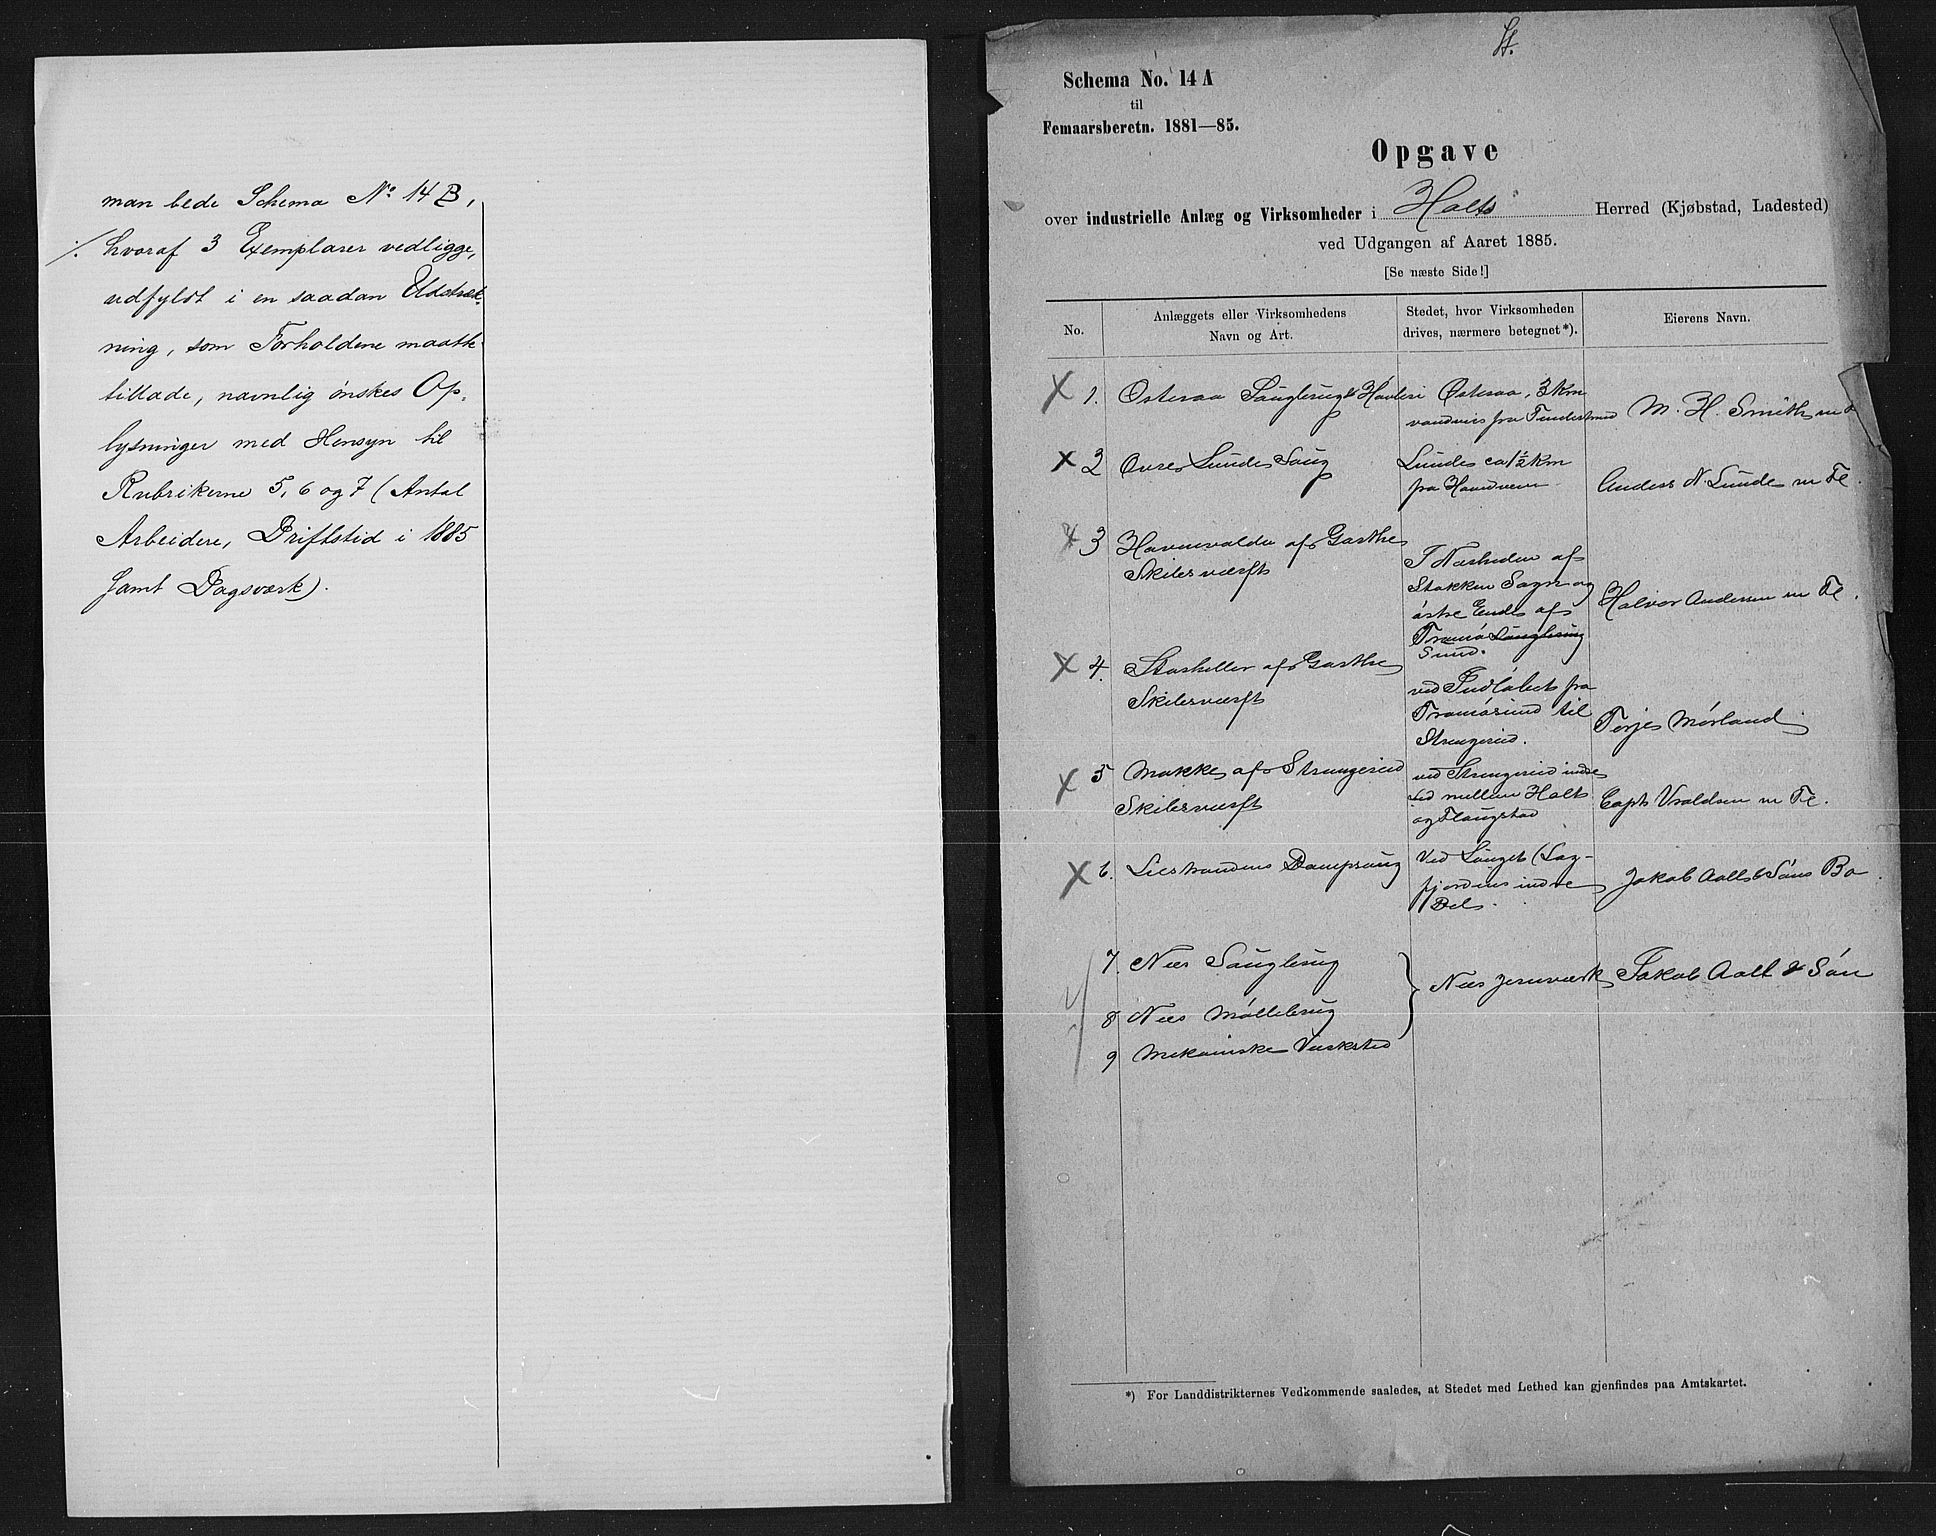 man bede Schema No 14 B,
./. hvoraf 3 Exemplarer vedligge,
udfyldt i en saadan Udstræk-
ning, som Forholdene maatte
tillade, navnlig ønskes Op-
lysninger med Hensyn til
Rubrikerne 5, 6 og 7 (Antal
Arbeidere, Driftstid i 1885
samt Dagsværk).
Schema No. 14 A
til
Femaarsberetn. 1881—85.
Opgave
over industrielle Anlæg og Virksomheder i Holts Herred (Kjøbstad, Ladested)
ved Udgangen af Aaret 1885.
[Se næste Side!]
No.
Anlæggets eller Virksomhedens
Navn og Art.
Stedet, hvor Virksomheden
drives, nærmere betegnet*).
Eierens Navn.
1. Osteraa Saugbrug & Høvleri
Østeraa, 3 km
fra
M. H. Smith m Fl
2 Øvre Lunde Saug
Lunde ca 1/2 km
fra
Anders N. Lunde m Fl.
3 af Garthe
Skibsværft
I Nærheden af
Stokken
østre Ende af
Tromø Saugbrug
Sund.
Halvor Andersen m Fl.
4. af Garthe
Skibsværft
ved Indløbet fra
Tromøsund til
Strengereid.
Terje Mørland
5 af Strengereid
Skibsværft
ved Strengereid
mellem Holt
og Flangstad
Capt Vraldsen m Fl.
6. Liestrandens Dampsaug
Ved Sauget (Sag-
fjordens indre
Del.
Jakob Aall & Søns Bo.
7. Næs Saugbrug
8 Næs Møllebrug
9 Mekaniske Værksted
Næs Jernværk
Jakob Aall & Søn
*) For Landdistrikternes Vedkommende saaledes, at Stedet med Lethed kan gjenfindes paa Amtskartet.